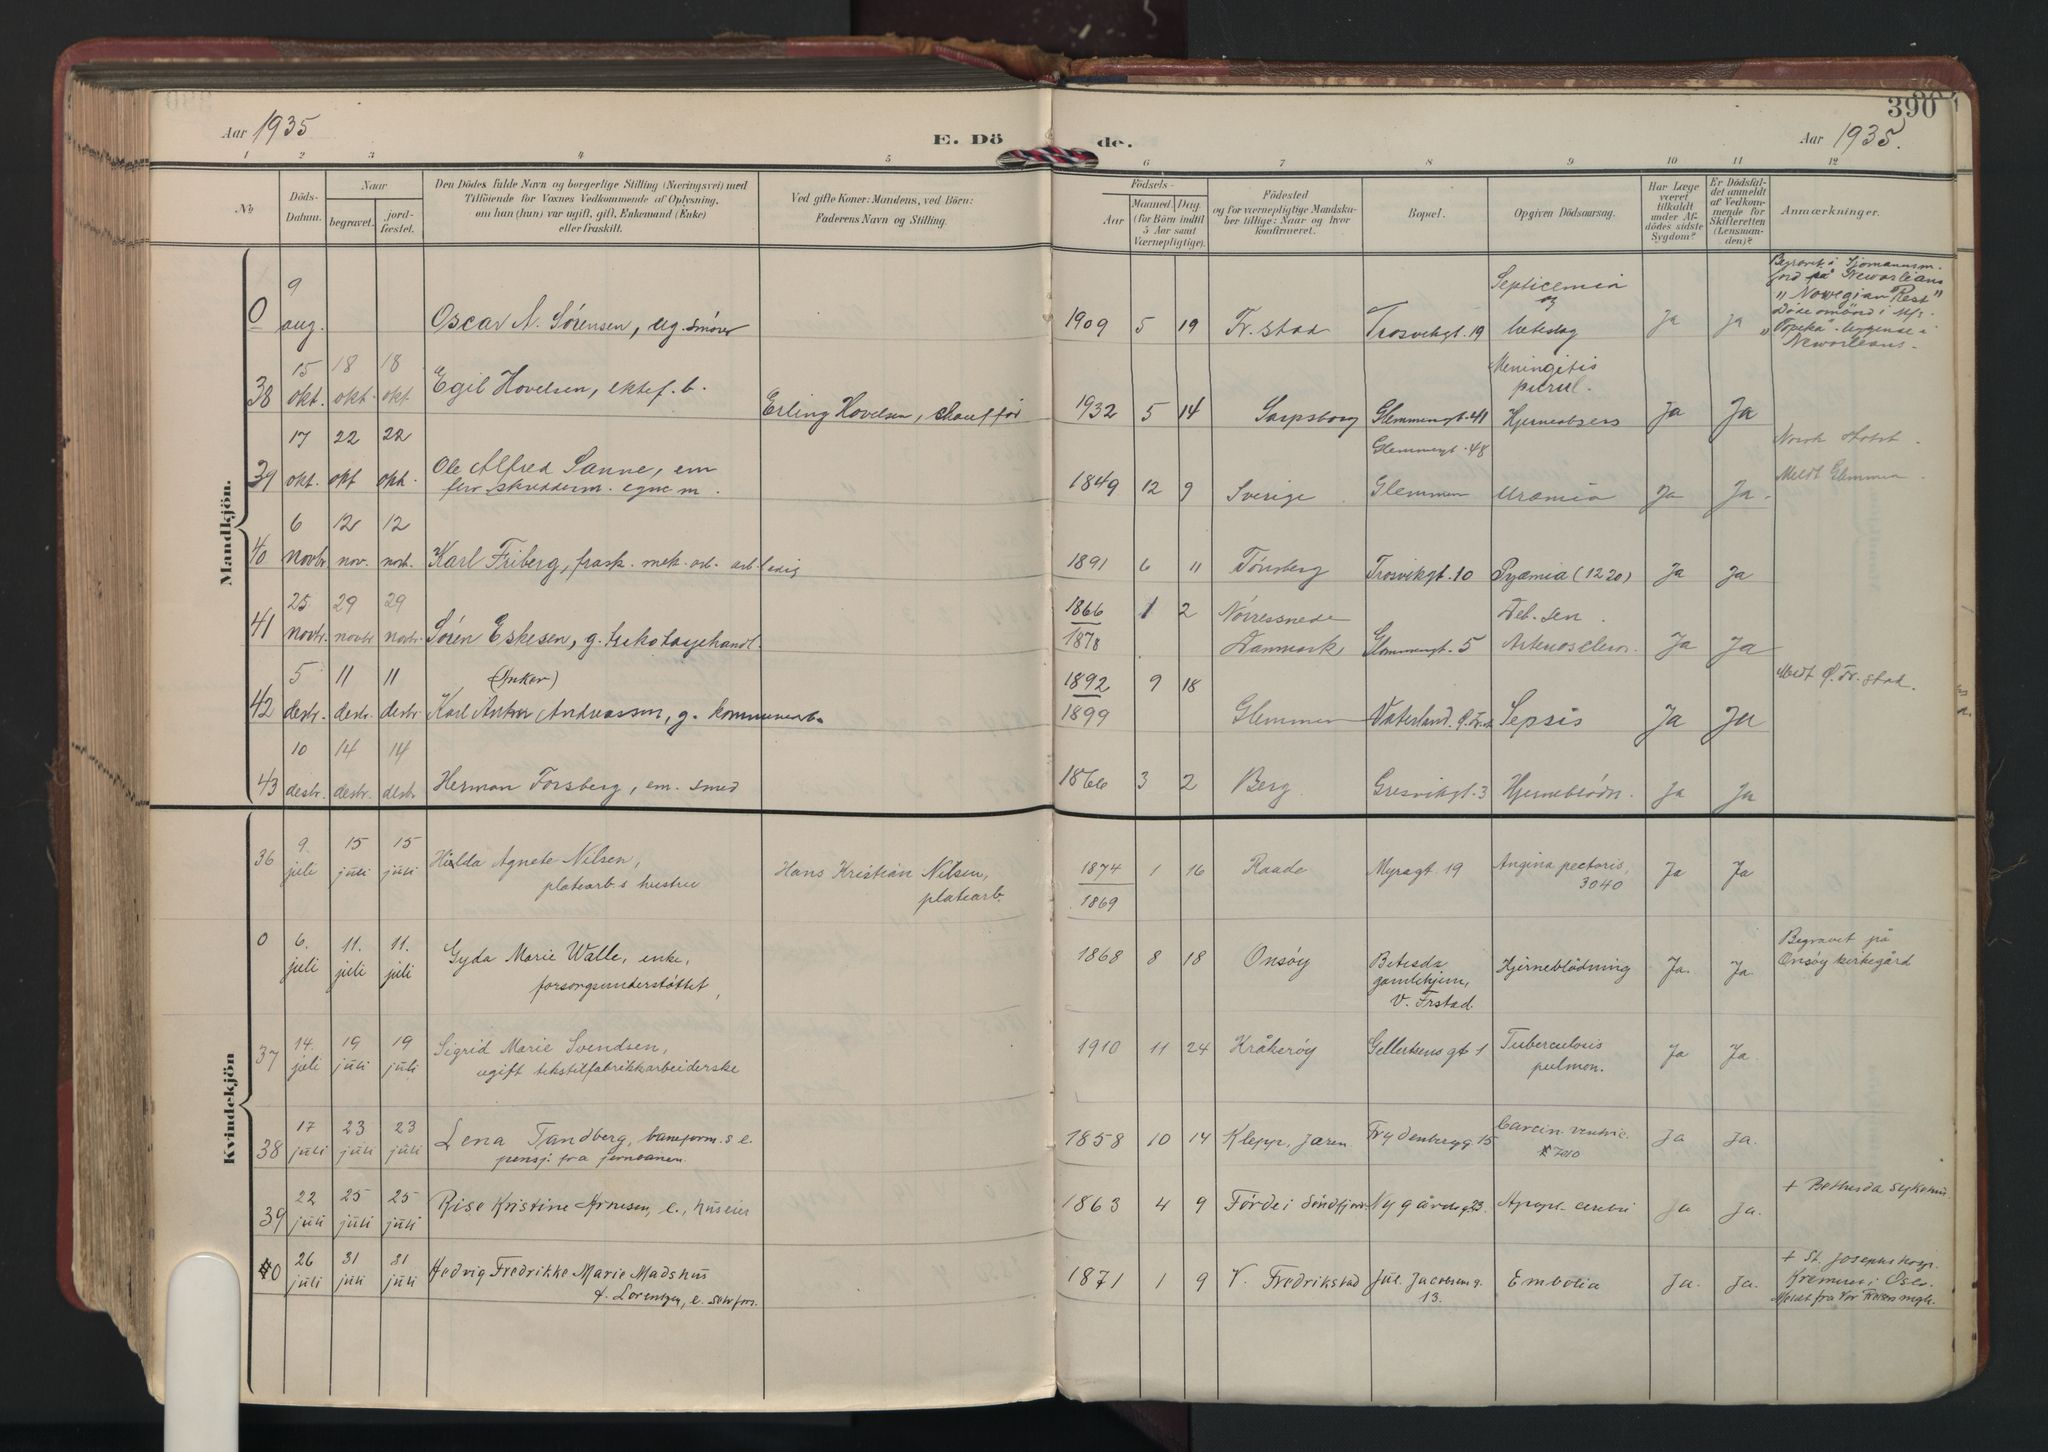 390
Aar 1935
E. Dö de.
Aar 1935.
1 2 3 4 5 6 7 8 9 10 11 12
No
Döds-Datum.
Naar
begravet.
jord-fæstet.
Den Dödes fulde Navn og borgerlige Stilling (Næringsvei) med
Tilföiende for Voxnes Vedkommende af Oplysning,
om han (hun) var ugift, gift, Enkemand (Enke)
eller fraskilt.
Ved gifte Koner: Mandens, ved Börn:
Faderens Navn og Stilling.
Födsels-
Aar
Maaned. Dag.
(for Börn indtil
5 Aar samt
Værnepligtige).
Födested
og for værnepligtige Mandska-
ber tillige: Naar og hvor
konfirmeret.
Bopæl.
Opgiven Dödsaarsag.
Har Læge
været
tilkaldt
under Af-
dödes sidste
Sygdom?
Er Dödsfal-
det anmeldt
af Vedkom-
mende for
Skifteretten
(Lensman-
den)?
Anmærkninger.
Mandkjön.
0 9 aug. Oscar A. Sørensen, ug. smører 1909 5 19 Fr.stad Trosvikgt. 19 Septicemia og Ja Ja
"Norwegian Rest"
"Topeka"
Neworleans.
38 15 okt. 18 okt. 18 okt. Egil Hovelsen, ektef. b. Erling Hovelsen, chauffør 1932 5 14 Sarpsborg Glemmengt. 41 Meningitis Ja Ja
39 17 okt. 22 okt 22 okt. Ole Alfred Sanne, em
fhv. skredderm. egne m. 1849 12 9 Sverige Glemmengt. 48
Glemmen Uræmia Ja Ja.
Meldt Glemmen
40 6 novbr 12 nov. 12 novb. Karl Friberg, frask. mek. arb. arb.ledig 1891 6 11 Tønsberg Trosvikgt. 10 Pyæmia (1220) Ja Ja
41 25 novbr. 29 novbr 29 novbr. Søren Eskesen, g. trikotagehandl. 1866
1878 1 2 Nørresnede
Danmark Glommengt. 5 Deb. sen.
Arterioscleros. Ja Ja
42 5 desbr. 11 desbr. 11 desbr (Anker)
Karl Anker Andreassen, g. kommunearb. 1892
1899 9 18 Glemmen Vaterland. Ø. Fr.st Sepsis Ja Ja
Meldt Ø. Fr.stad.
43 10 desbr. 14 desbr. 14 desbr Herman Forsberg, em. smed 1866 3 2 Berg Gresvikgt. 3 Hjerneblødn. Ja Ja
Kvindekjön
36 9. juli 15 juli 15 juli Hilda Agnete Nilsen,
platearb.s hustru Hans Kristian Nilsen,
platearb. 1874
1869 1 16 Raade Myragt. 19 Angina pectoris,
3040 Ja Ja
0 6. juli 11. juli 11. juli Gyda Marie Walle, enke,
forsorgsunderstøttet, 1868 8 18 Onsøy Betesda
gamlehjem,
V. Frstad. Hjerneblödning Ja. Ja
Begravet på
Onsøy kirkegård
37 14. juli 19 juli 19 juli Sigrid Marie Svendsen,
ugift tekstilfabrikkarbeiderske 1910 11 24 Kråkerøy Gellertsens gt 1 Tuberculosis
pulmon. Ja Ja.
38 17 juli 23 juli 23 juli Lena Tandberg, baneform.s e.
pensj. fra jernbanen. 1858 10 14 Klepp, Jæren Frydenbergg. 15 Carcin. ventric.
7010 Ja Ja.
39 22 juli 25 juli 25 juli Kristine Arnesen, e., huseier 1863 4 9 Førde i Sundfjord Nygårdsg. 23. Apopl. cerebri Ja Ja.
+ Bethesda sykehus.
40 26 juli 31 juli 31 juli Hedvig Fredrikke Marie Madshus
f. Lorentzen, e. 1871 1 9 V. Fredrikstad Jul. Jacobsens g.
13. Embolia Ja. Ja.
+ St. Josephs hosp.
Kremert i Oslo.
Meldt fra Vor Frelsers mgh.